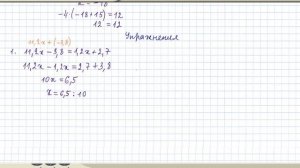 -4·(-18+15)=12
12=12
Упражнения
11,2x+(-3,8)
1. 11,2x-3,8=1,2x+2,7
11,2x-1,2x=2,7+3,8
10x=6,5
x=6,5:10